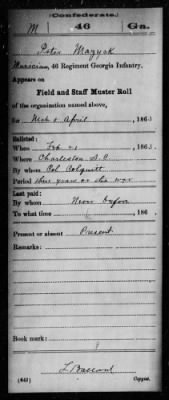 Confederate.
M 46 Ga.
Peter Mazyck
Musician, 46 Regiment Georgia Infantry.
Appears on
Field and Staff Muster Roll
of the organization named above,
for Mch & April, 186
Enlisted:
When Feb 186
Where Charleston S.C
By whom Col Colquitt
Period three years or the war
Last paid:
By whom Never
To what time , 186
Present or absent Present
Remarks:
Book mark:
(642) Copyist.